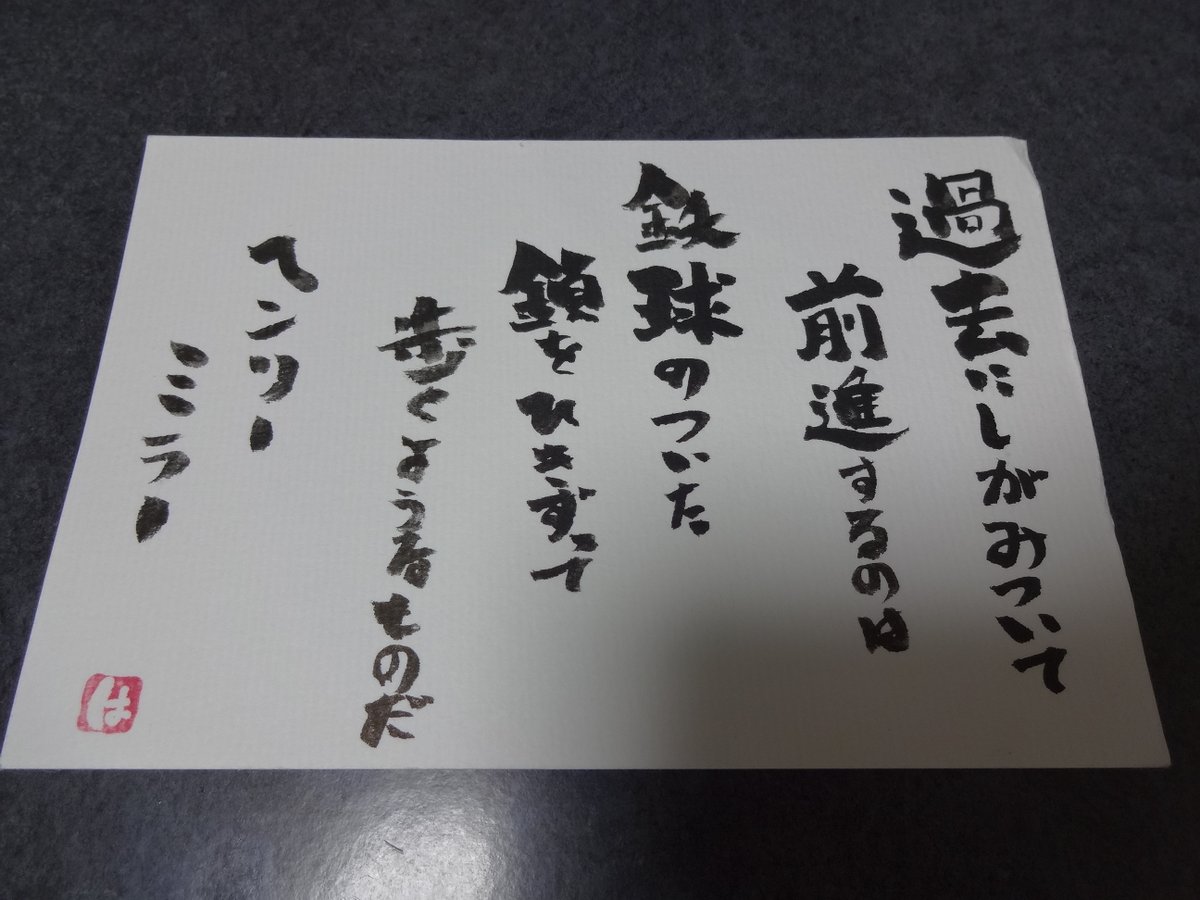 過去にしがみついて
前進するのは
鉄球のついた
鎖をひきずって
歩くようなものだ
ヘンリー
ミラー
は